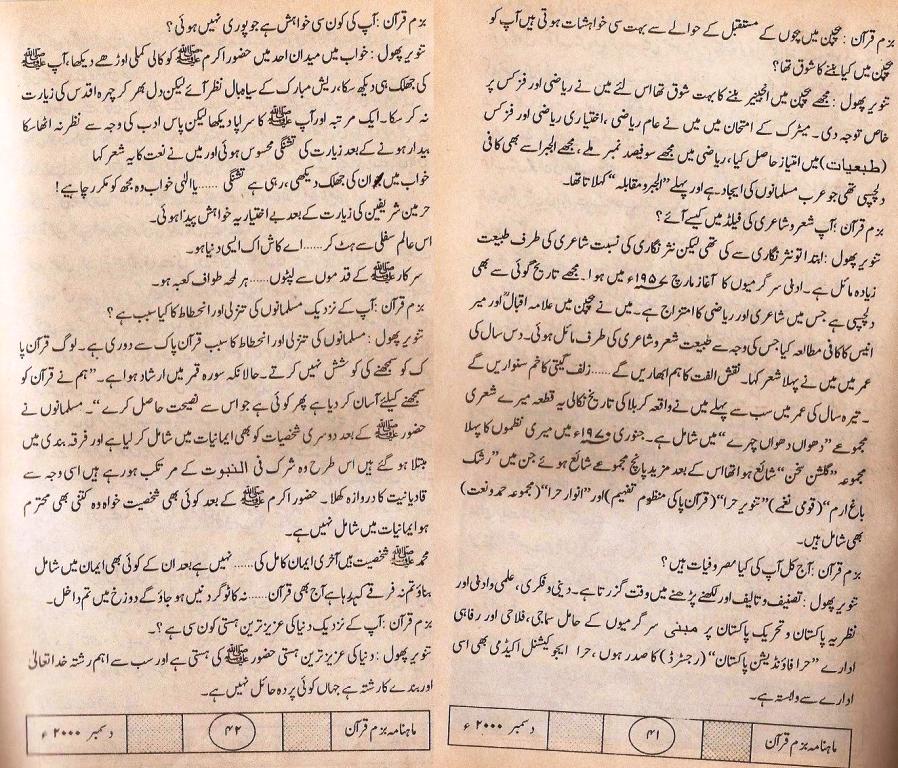 بزم قرآن : بچپن میں بچوں کے مستقبل کے حوالے سے بہت سی خواہشات ہوتی ہیں آپ کو
بچپن میں کیا بننے کا شوق تھا؟
تنویر پھول : مجھے بچپن میں انجینیر بننے کا بہت شوق تھا اس لئے میں نے ریاضی اور فزکس پر
خاص توجہ دی۔ میٹرک کے امتحان میں میں نے عام ریاضی ، اختیاری ریاضی اور فزکس
(طبعیات) میں امتیاز حاصل کیا، ریاضی میں مجھے سو فیصد نمبر ملے، مجھے الجبرا سے بھی کافی
دلچسپی تھی جو عرب مسلمانوں کی ایجاد ہے اور پہلے ”الجبر و مقابلہ“ کہلاتا تھا۔
بزم قرآن : آپ شعر و شاعری کی فیلڈ میں کیسے آئے؟
تنویر پھول : ابتدا تو نثر نگاری سے کی تھی لیکن نثر نگاری کی نسبت شاعری کی طرف طبیعت
زیادہ مائل ہے۔ ادبی سرگرمیوں کا آغاز مارچ ۱۹۵۷ء میں ہوا۔ مجھے تاریخ گوئی سے بھی
دلچسپی ہے جس میں شاعری اور ریاضی کا امتزاج ہے۔ میں نے بچپن میں علامہ اقبالؒ اور میر
انیس کا کافی مطالعہ کیا جس کی وجہ سے طبیعت شعر و شاعری کی طرف مائل ہوئی۔ دس سال کی
عمر میں میں نے پہلا شعر کہا۔ نقش الفت کا ہم ابھاریں گے ...... زلف گیتی کا خم سنواریں گے
۔ تیرہ سال کی عمر میں سب سے پہلے میں نے واقعہ کربلا کی تاریخ نکالی یہ قطعہ میرے شعری
مجموعے ”دھواں دھواں چہرے“ میں شامل ہے۔ جنوری ۱۹۷۰ء میں میری نظموں کا پہلا
مجموعہ ”گلشن سخن“ شائع ہوا تھا اس کے بعد مزید پانچ مجموعے شائع ہوئے جن میں ”رشک
باغ ارم“ (قومی نغمے) ”تنویر حرا“ (قرآن پاک کی منظوم تفہیم) اور ”انوار حرا“ (مجموعہ حمد و نعت)
بھی شامل ہیں۔
بزم قرآن : آج کل آپ کی کیا مصروفیات ہیں؟
تنویر پھول : تصنیف و تالیف اور لکھنے پڑھنے میں وقت گزرتا ہے۔ دینی و فکری، علمی و ادبی اور
نظریہ پاکستان و تحریک پاکستان پر مبنی سرگرمیوں کے حامل سماجی، فلاحی اور رفاہی
ادارے ”حرا فاؤنڈیشن پاکستان“ (رجسٹرڈ) کا صدر ہوں، حرا ایجوکیشنل اکیڈمی بھی اسی
ادارے سے وابستہ ہے۔
ماہنامہ بزم قرآن ۴۱ دسمبر ۲۰۰۰ء
بزم قرآن : آپ کی کون سی خواہش ہے جو پوری نہیں ہوئی؟
تنویر پھول : خواب میں میدان احد میں حضور اکرم ﷺ کو کالی کملی اوڑھے دیکھا، آپ ﷺ
کی جھلک ہی دیکھ سکا، ریش مبارک کے سیاہ بال نظر آئے لیکن دل بھر کر چہرہ اقدس کی زیارت
نہ کر سکا۔ ایک مرتبہ اور آپ ﷺ کا سراپا دیکھا لیکن پاس ادب کی وجہ سے نظر نہ اٹھا سکا
بیدار ہونے کے بعد زیارت کی تشنگی محسوس ہوئی اور میں نے نعت کا یہ شعر کہا
خواب میں ان کی جھلک دیکھی ، رہی ہے تشنگی ...... یا الٰہی خواب وہ مجھ کو مکرر چاہیے!
حرمین شریفین کی زیارت کے بعد بے اختیار یہ خواہش پیدا ہوئی۔
اس عالم سفلی سے ہٹ کر ...... اے کاش اک ایسی دنیا ہو۔
سرکار ﷺ کے قدموں سے لپٹوں ...... ہر لمحہ طواف کعبہ ہو۔
بزم قرآن : آپ کے نزدیک مسلمانوں کی تنزلی اور انحطاط کا کیا سبب ہے؟
تنویر پھول : مسلمانوں کی تنزلی اور انحطاط کا سبب قرآن پاک سے دوری ہے۔ لوگ قرآن پا
ک کو سمجھنے کی کوشش نہیں کرتے۔ حالانکہ سورہ قمر میں ارشاد ہوا ہے۔ ”ہم نے قرآن کو
سمجھنے کیلئے آسان کر دیا ہے پھر کوئی ہے جو اس سے نصیحت حاصل کرے“۔ مسلمانوں نے
حضور ﷺ کے بعد دوسری شخصیات کو بھی ایمانیات میں شامل کر لیا ہے اور فرقہ بندی میں
مبتلا ہو گئے ہیں اس طرح وہ شرک فی النبوت کے مرتکب ہو رہے ہیں اسی وجہ سے
قادیانیت کا دروازہ کھلا۔ حضور اکرم ﷺ کے بعد کوئی بھی شخصیت خواہ وہ کتنی بھی محترم
ہو ایمانیات میں شامل نہیں ہے۔
محمد ﷺ شخصیت ہیں آخری ایمان کامل کی ...... نہیں ہے بعد ان کے کوئی بھی ایمان میں شامل
بناؤ تم نہ فرقے کہہ رہا ہے آج بھی قرآن ...... نہ کانو گر د نہیں ہو جاؤ گے دوزخ میں تم داخل۔
بزم قرآن : آپ کے نزدیک دنیا کی عزیز ترین ہستی کون سی ہے؟۔
تنویر پھول : دنیا کی عزیز ترین ہستی حضور ﷺ کی ہستی ہے اور سب سے اہم رشتہ خدا تعالیٰ
اور بندے کا رشتہ ہے جہاں کوئی پردہ حائل نہیں ہے۔
ماہنامہ بزم قرآن ۴۲ دسمبر ۲۰۰۰ء